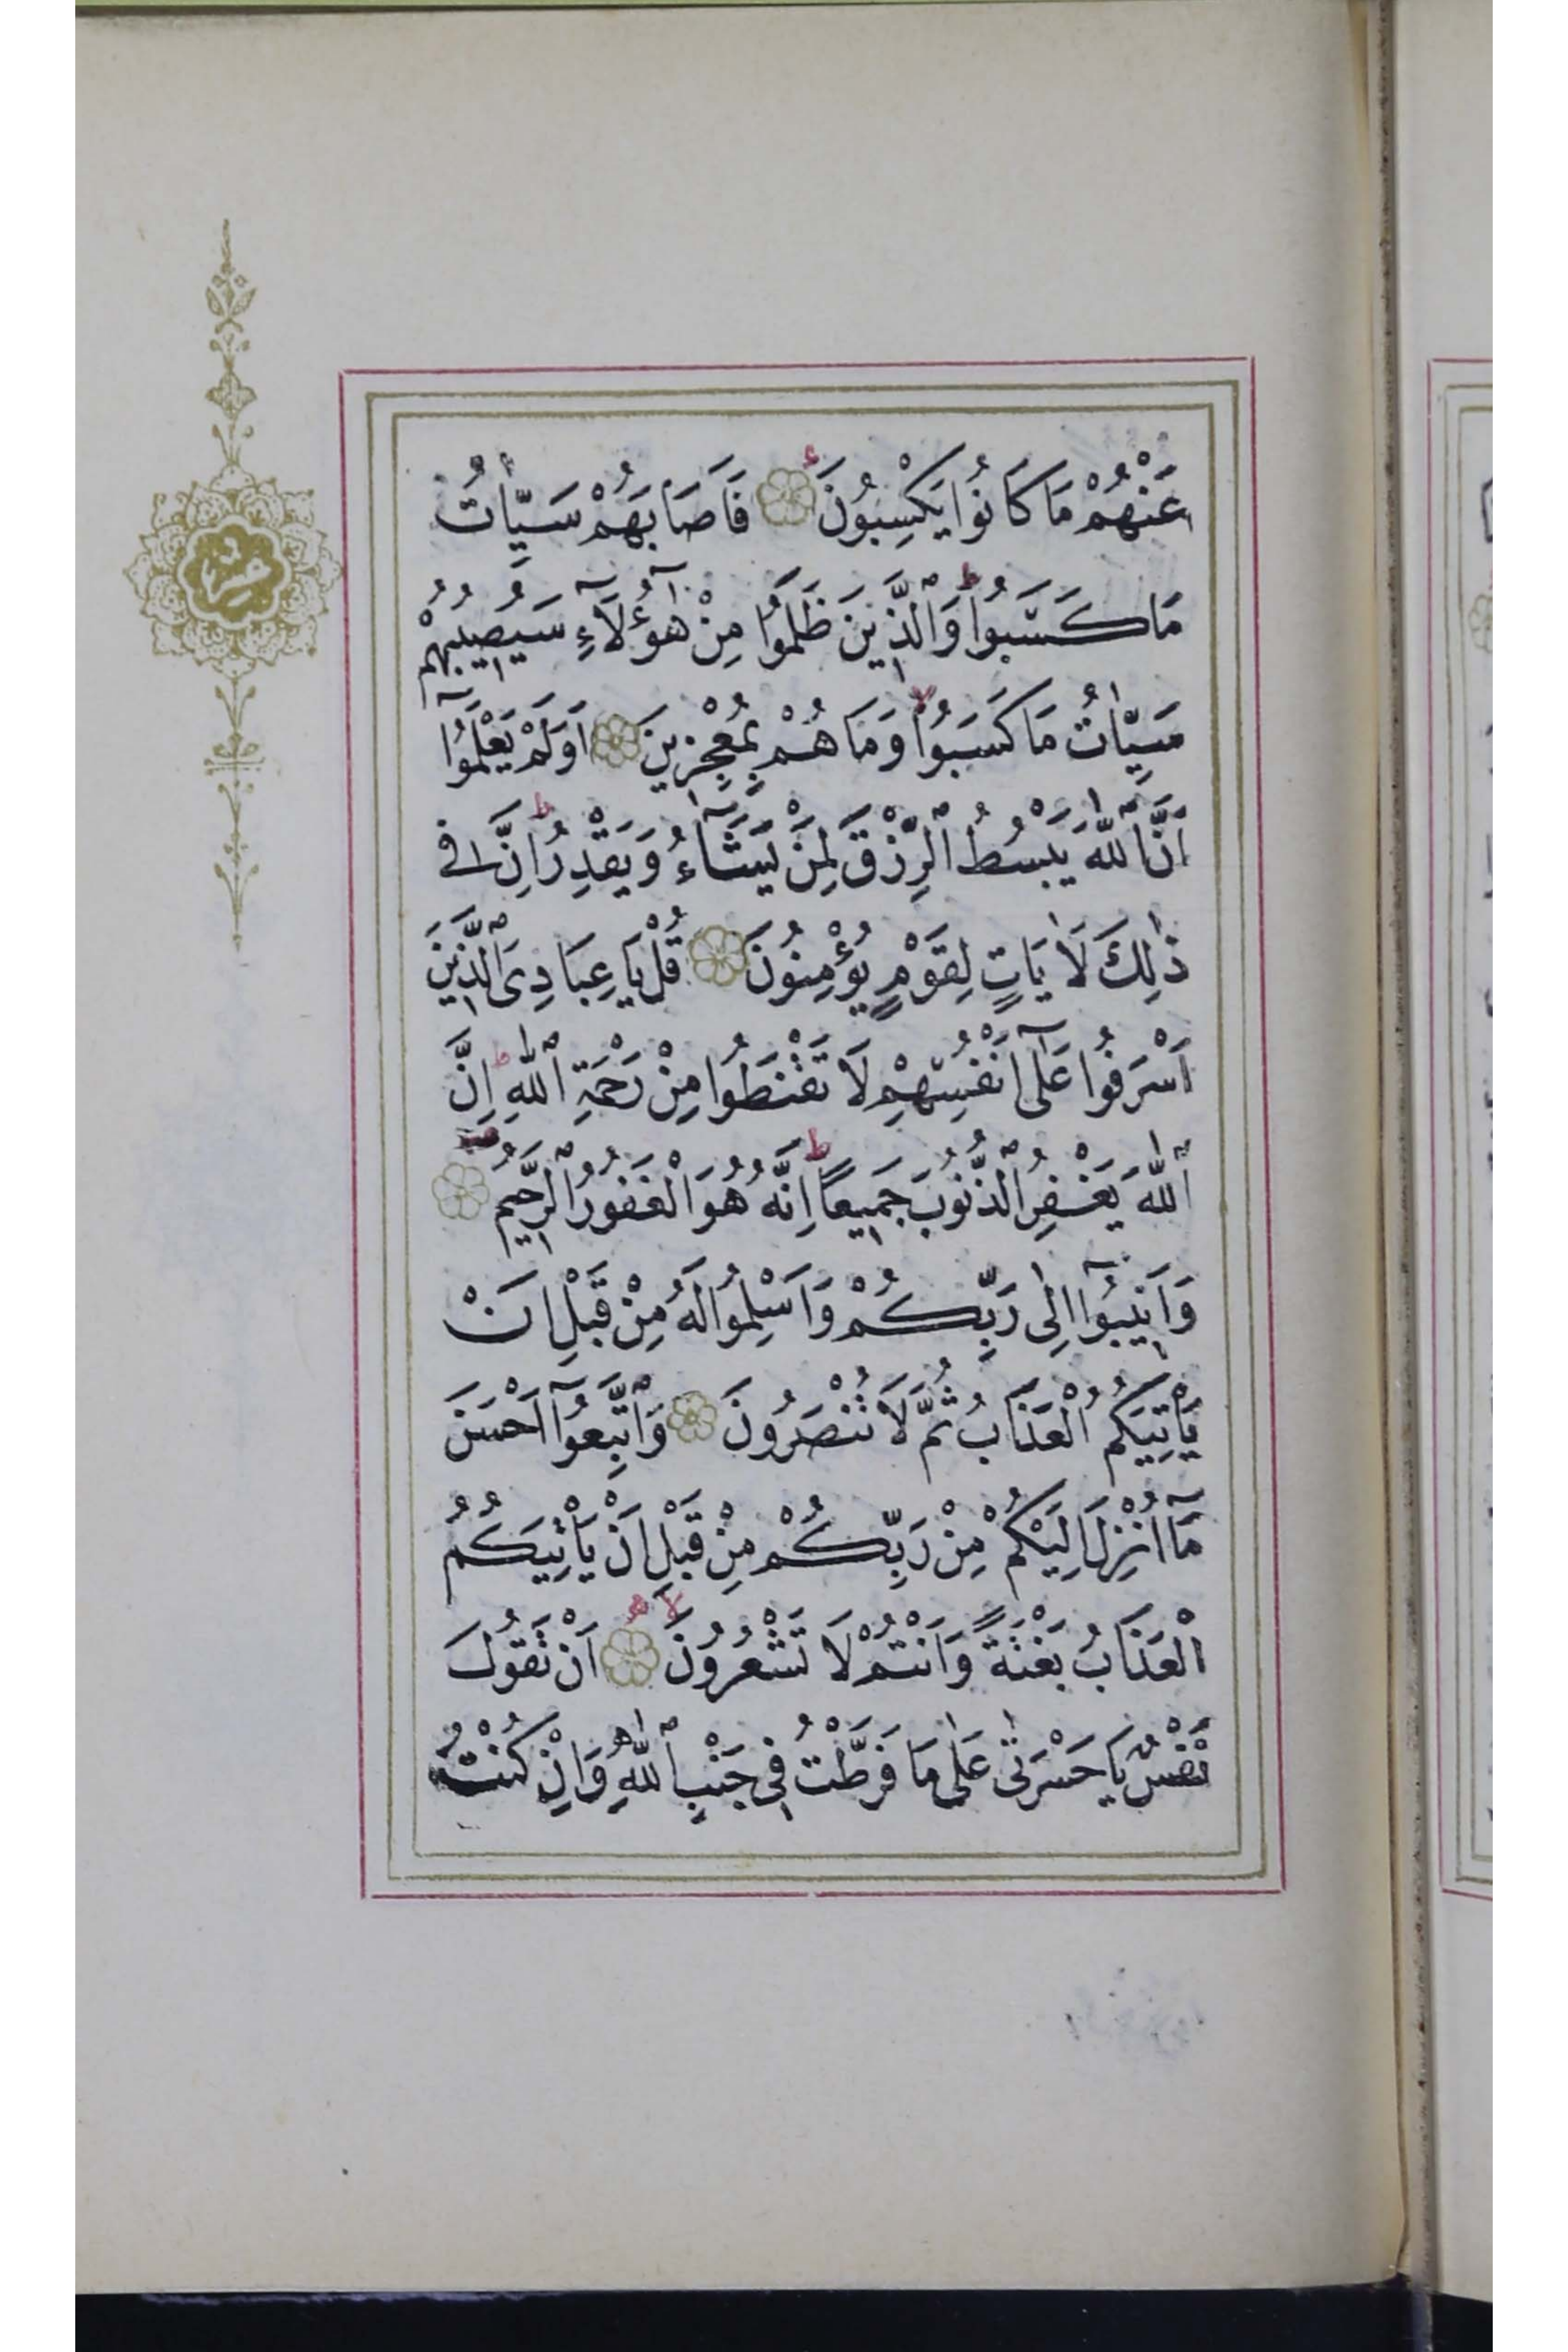 عَنْهُمْ مَا كَانُوا يَكْسِبُونَ فَاَصَابَهُمْ سَيِّاٰتُ
مَا كَسَبُوا وَالَّذِينَ ظَلَمُوا مِنْ هٰٓؤُلَٓاءِ سَيُصِيبُهُمْ
سَيِّاٰتُ مَا كَسَبُوا وَمَا هُمْ بِمُعْجِزِينَ اَوَلَمْ يَعْلَمُٓوا
اَنَّ اللّٰهَ يَبْسُطُ الرِّزْقَ لِمَنْ يَشَٓاءُ وَيَقْدِرُ اِنَّ فِى
ذٰلِكَ لَاٰيَاتٍ لِقَوْمٍ يُؤْمِنُونَ قُلْ يَا عِبَادِىَ الَّذِينَ
اَسْرَفُوا عَلٰٓى اَنْفُسِهِمْ لَا تَقْنَطُوا مِنْ رَحْمَةِ اللّٰهِ اِنَّ
اللّٰهَ يَغْفِرُ الذُّنُوبَ جَمِيعًا اِنَّهُ هُوَ الْغَفُورُ الرَّحِيمُ
وَاَنِيبُٓوا اِلٰى رَبِّكُمْ وَاَسْلِمُوا لَهُ مِنْ قَبْلِ اَنْ
يَاْتِيَكُمُ الْعَذَابُ ثُمَّ لَا تُنْصَرُونَ وَاتَّبِعُٓوا اَحْسَنَ
مَٓا اُنْزِلَ اِلَيْكُمْ مِنْ رَبِّكُمْ مِنْ قَبْلِ اَنْ يَاْتِيَكُمُ
الْعَذَابُ بَغْتَةً وَاَنْتُمْ لَا تَشْعُرُونَ اَنْ تَقُولَ
نَفْسٌ يَا حَسْرَتٰى عَلٰى مَا فَرَّطْتُ فِى جَنْبِ اللّٰهِ وَاِنْ كُنْتُ